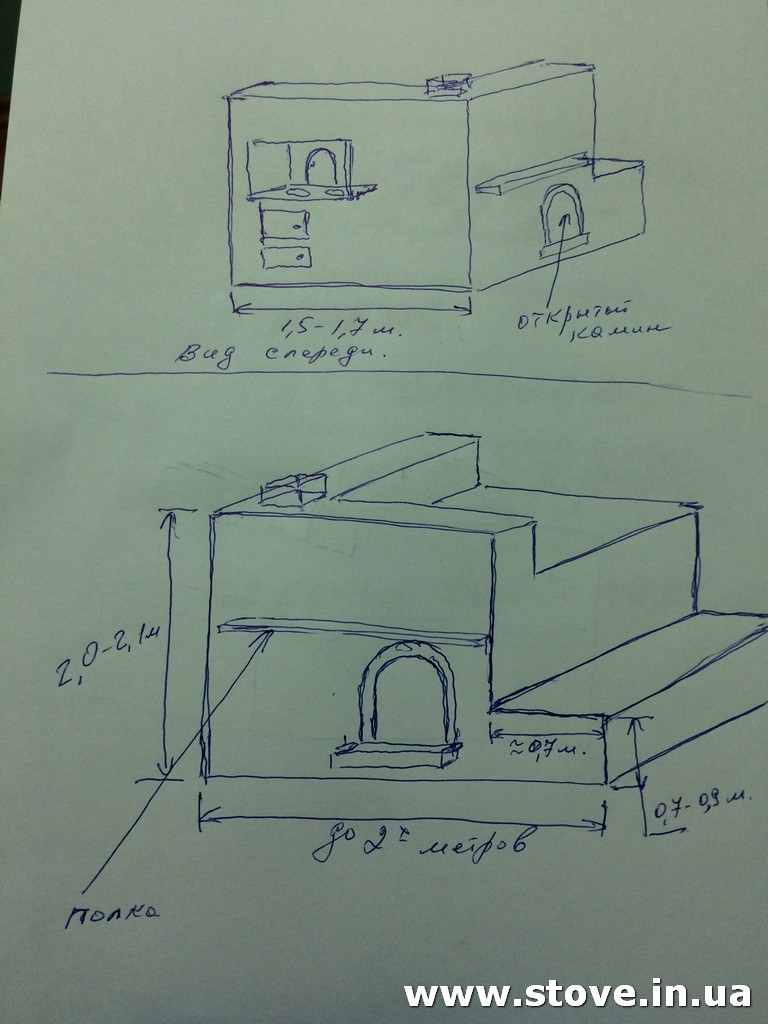 1,5-1,7 м.
Вид спереди.
открытый
камин
2,0-2,1м
≈0,7м.
0,7-0,9 м.
до 2х метров
полка
www.stove.in.ua